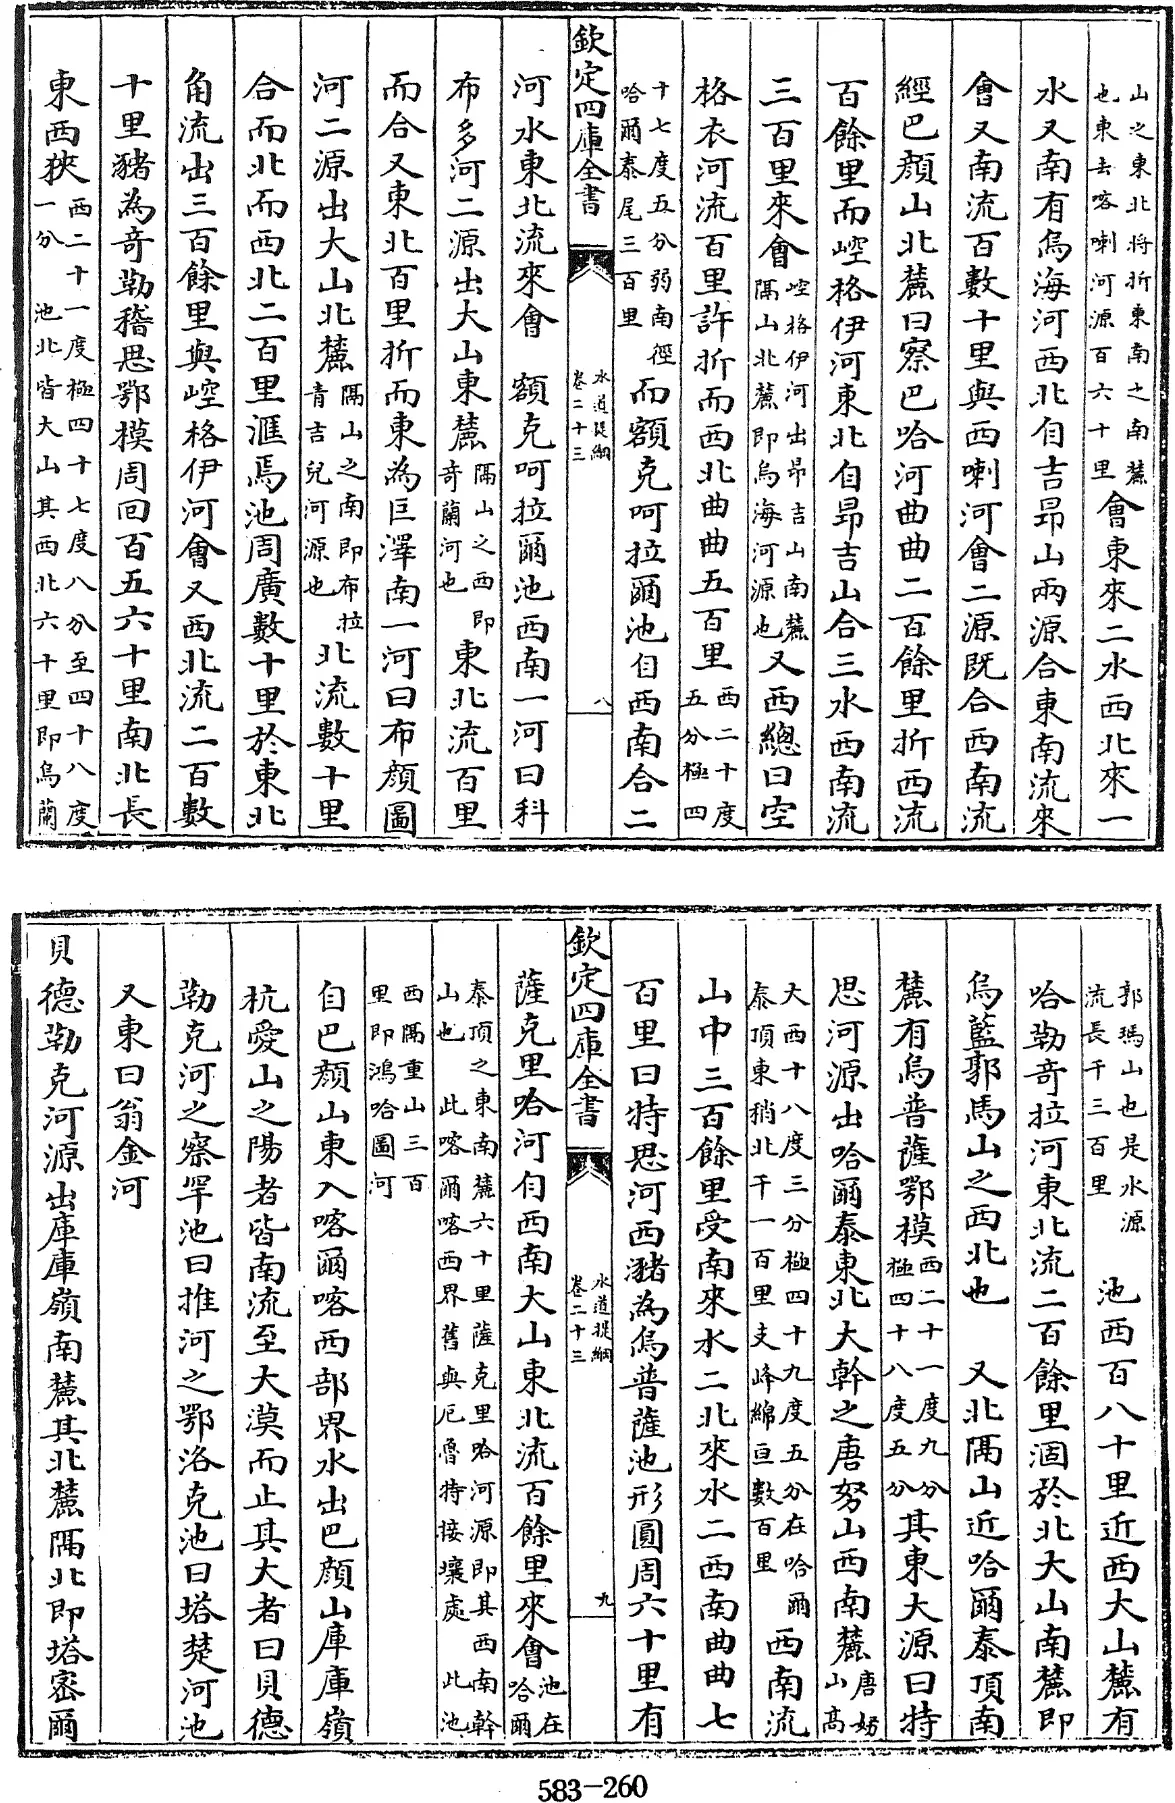 山之東北將折東南之南麓
也東去喀喇河源百六十里
會東來二水西北來一
水又南有烏海河西北自吉昻山兩源合東南流來
會又南流百數十里與西喇河會二源既合西南流
經巴顔山北麓曰察巴哈河曲曲二百餘里折西流
百餘里而崆格伊河東北自昻吉山合三水西南流
三百里來會
崆格伊河出昻吉山南麓
隔山北麓即烏海河源也
又西總曰空
格衣河流百里許折而西北曲曲五百里
西二十度
五分極四
十七度五分弱南徑
哈爾泰尾三百里
而額克呵拉爾池自西南合二
欽定四庫全書
水道提綱
卷二十三
八
河水東北流來會　額克呵拉爾池西南一河曰科
布多河二源出大山東麓
隔山之西即
奇蘭河也
東北流百里
而合又東北百里折而東為巨澤南一河曰布顔圖
河二源出大山北麓
隔山之南即布拉
青吉兒河源也
北流數十里
合而北而西北二百里滙焉池周廣數十里於東北
角流出三百餘里與崆格伊河會又西北流二百數
十里豬為奇勒稽思鄂模周回百五六十里南北長
東西狹
西二十一度極四十七度八分至四十八度
一分　池北皆大山其西北六十里即烏蘭
郭瑪山也是水源
流長千三百里
池西百八十里近西大山麓有
哈勒奇拉河東北流二百餘里涸於北大山南麓即
烏藍郭馬山之西北也　又北隔山近哈爾泰頂南
麓有烏普薩鄂模
西二十一度九分
極四十八度五分
其東大源曰特
思河源出哈爾泰東北大幹之唐努山西南麓
唐努
山高
大西十八度三分極四十九度五分在哈爾
泰頂東稍北千一百里支峰綿亘數百里
西南流
山中三百餘里受南來水二北來水二西南曲曲七
百里曰特思河西瀦為烏普薩池形圓周六十里有
欽定四庫全書
水道提綱
卷二十三
九
薩克里哈河自西南大山東北流百餘里來會
池在
哈爾
泰頂之東南麓六十里薩克里哈河源即其西南幹
山也　此喀爾喀西界舊與厄魯特接壤處　此池
西隔重山三百
里即鴻哈圖河
自巴顔山東入喀爾喀西部界水出巴顔山庫庫嶺
杭愛山之陽者皆南流至大漠而止其大者曰貝德
勒克河之察罕池曰推河之鄂洛克池曰塔楚河池
又東曰翁金河
貝德勒克河源出庫庫嶺南麓其北麓隅北即塔密爾
583-260